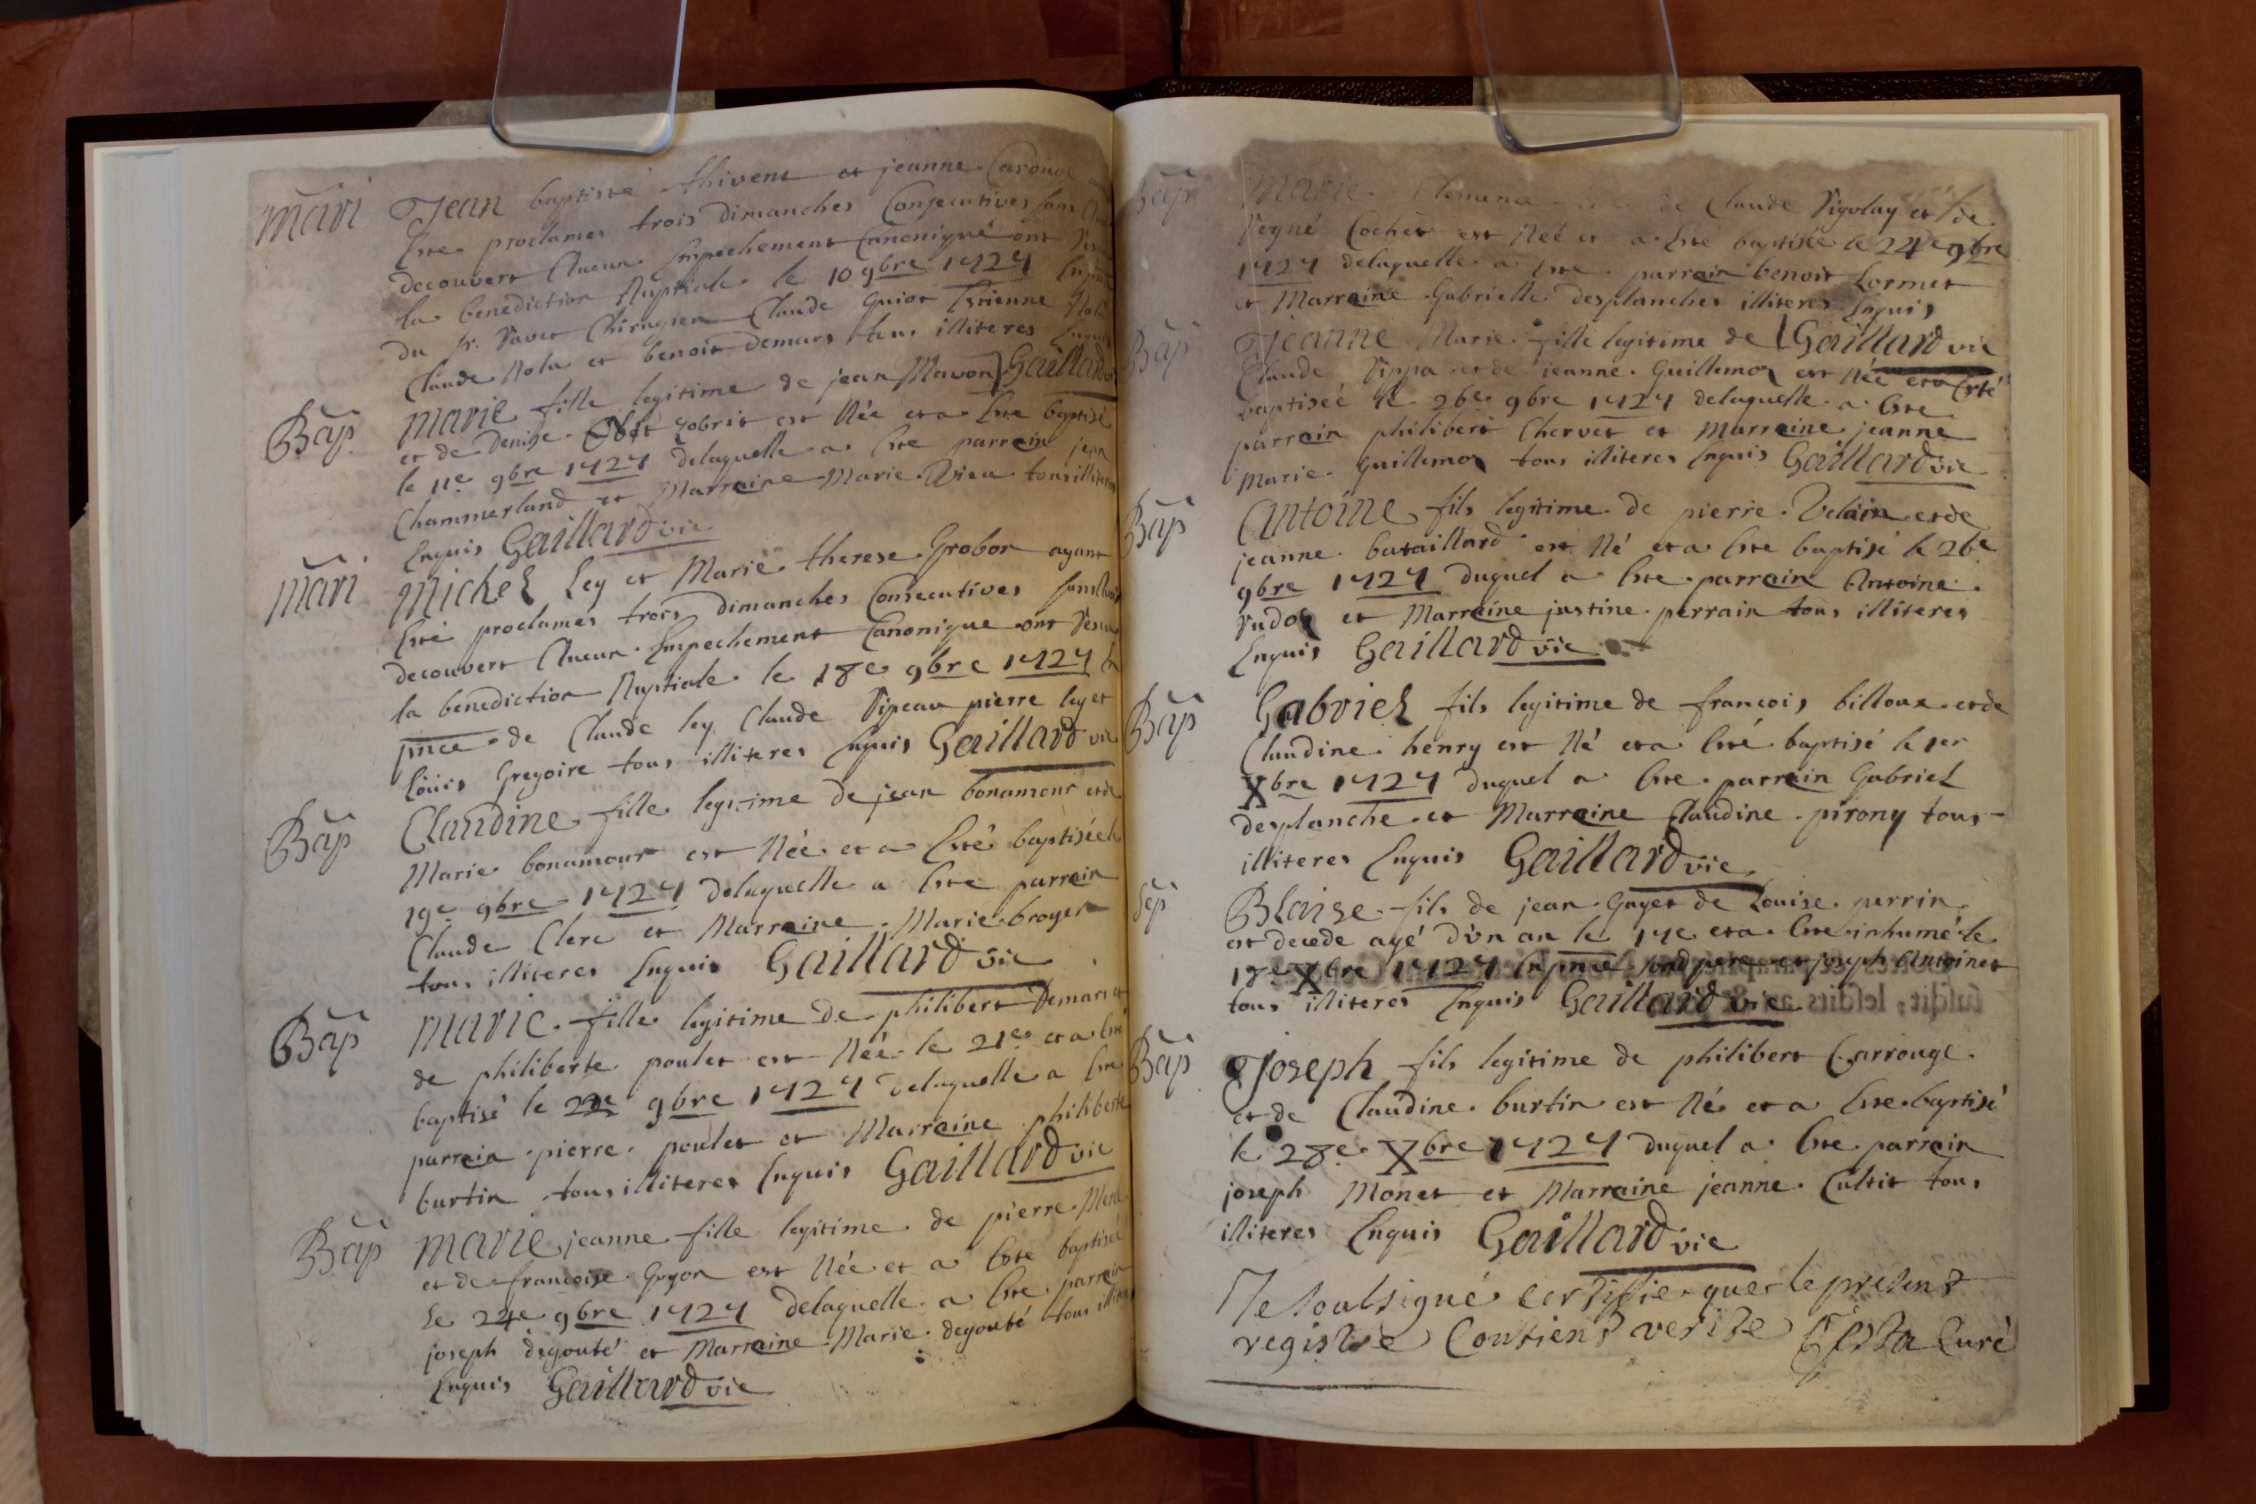 Mari Jean baptiste thivent et jeanne Carouge
Esté proclames trois dimanches Consecutives sans
decouvert Aucun Empechement Canonique ont
la benediction Nuptiale le 10 9bre 1727
du sr. Chirugien Claude Guiot Estienne
Claude Nola et benoit demars tous illiteres Enquis
Bap Marie fille legitime de jean Mavon Gaillard
et de denise gobrit est Née et a Esté baptisé
le 11e 9bre 1727 delaquelle a Este parrain jean
Chammerland et Marraine Marie tous illiteres
Enquis Gaillard vic
Mari Michel Ley et Marie therese Grobon ayant
Esté proclames trois dimanches Consecutives sans
decouvert Aucun Empechement Canonique ont
la benediction Nuptiale le 18e 9bre 1727
pnce de Claude ley Claude pierre ley et
Loüis Gregoire tous illiteres Enquis Gaillard vic
Bap Claudine fille legitime de jean bonamour et de
Marie bonamour est Née et a Esté baptisée le
19e 9bre 1727 delaquelle a Este parrain
Claude Clerc et Marraine Marie broyer
tous illiteres Enquis Gaillard vic
Bap Marie fille legitime de philibert Demars et
de philiberte poulet est Née le 21e et a Esté
baptisé le 22e 9bre 1727 delaquelle a Este
parrain pierre poulet et Marraine philiberte
burtin tous illiteres Enquis Gaillard vic
Bap Marie jeanne fille legitime de pierre
et de francoise Guyon est Née et a Este baptisée
Le 24e 9bre 1727 delaquelle a Este parrain
joseph degouté et Marraine Marie degouté tous illiteres
Enquis Gaillard vic
Bap Marie de Claude et de
Cochet est Née et a Esté baptisée le 24e 9bre
1727 delaquelle a Este parrain benoit Lormet
et Marraine Gabrielle desplanches illiteres Enquis
Bap Jeanne Marie fille legitime de Gaillard vic
Claude et de jeanne Guillemon est Née et a Esté
baptisée le 26e 9bre 1727 delaquelle a Este
parrain philibert Chervet et Marraine jeanne
Marie Guillemon tous illiteres Enquis Gaillard vic
Bap Antoine fils legitime de pierre Velain et de
jeanne bataillard est Né et a Este baptisé le 26e
9bre 1727 duquel a Este parrain Antoine
et Marraine justine perrain tous illiteres
Enquis Gaillard vic
Bap Gabriel fils legitime de francois billoux et de
Claudine henry est Né et a Esté baptisé le 1er
Xbre 1727 duquel a Este parrain Gabriel
desplanche et Marraine Claudine pirony tous
illiteres Enquis Gaillard vic
Sep Blaise fils de jean Guyet de Louise perrin
est decede agé d'vn an le 17e et a Este inhumé le
18e Xbre 1727 En pnce sond pere et joseph Antoinet
tous illiteres Enquis Gaillard vic
Bap Joseph fils legitime de philibert Carrouge
et de Claudine burtin est Né et a Este baptisé
le 28e Xbre 1727 duquel a Este parrain
joseph Monet et Marraine jeanne Cultit tous
illiteres Enquis Gaillard vic
Je soubsigné certiffie que le present
registre Contient verité Testa Curé